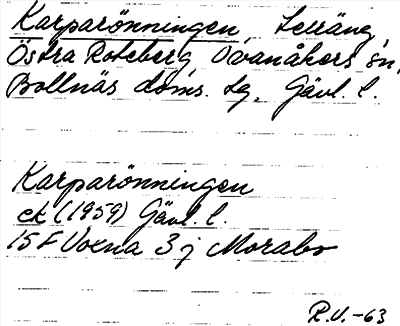 Karparönningen, terräng,
Östra Roteberg Ovanåkers sn,
Bollnäs doms. tg, Gävl. l.
Karparönningen
ek (1959) Gävl. l.
15F Voxna 3 j Morabo
R.V.-63